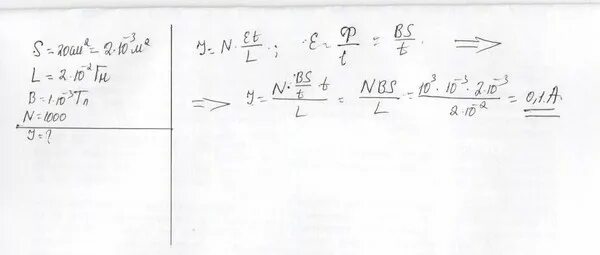 S = 20см² = 2·10⁻³м²
L = 2·10⁻² Гн
B = 1·10⁻³ Тл
N = 1000
J = ?
J = N · Et/L ; E = Ф/t = BS/t ⟹
⟹ J = (N · BS/t · t)/L = NBS/L = (10³ · 10⁻³ · 2·10⁻³)/(2·10⁻²) = 0,1 А